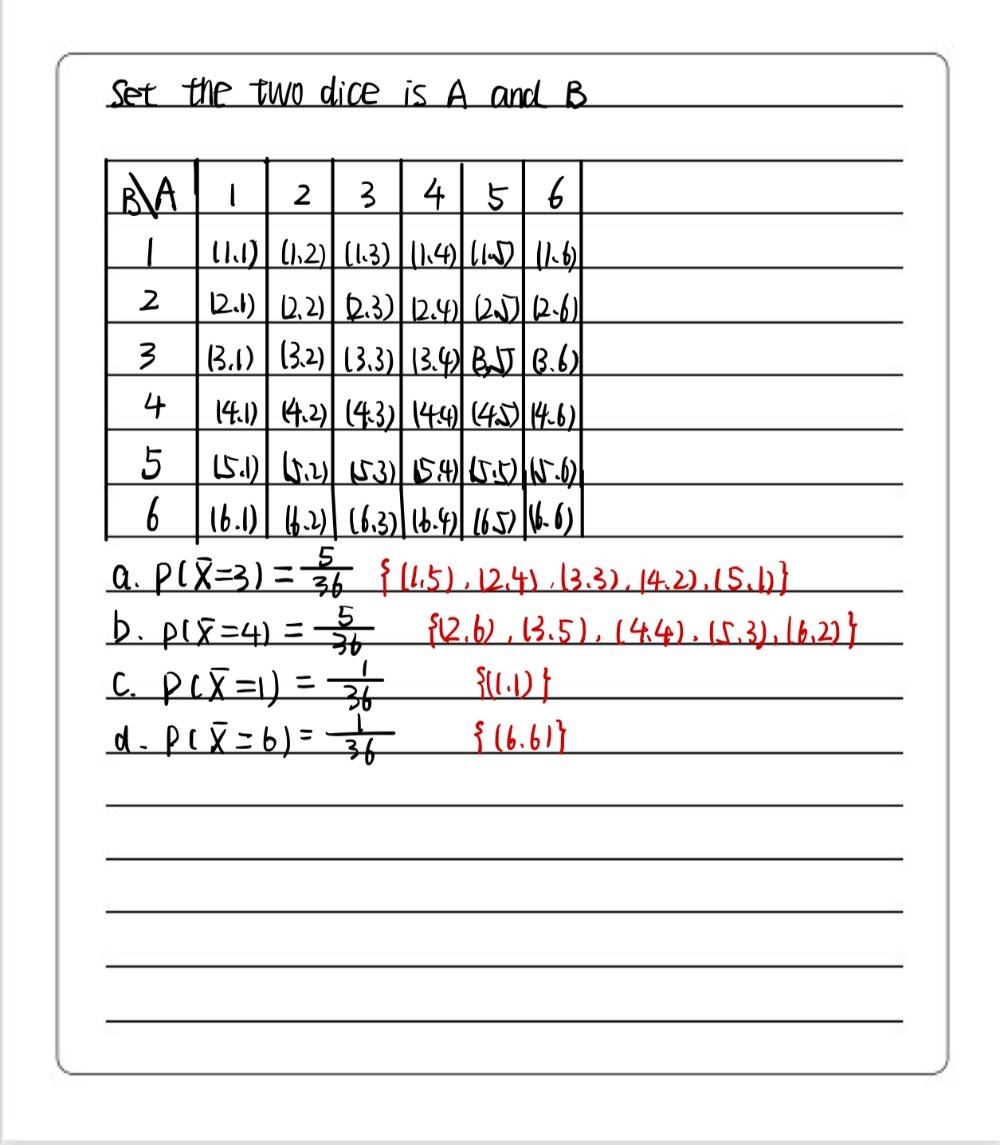 Set the two dice is A and B
B\A 1 2 3 4 5 6
1 (1.1) (1.2) (1.3) (1.4) (1.5) (1.6)
2 (2.1) (2.2) (2.3) (2.4) (2.5) (2.6)
3 (3.1) (3.2) (3.3) (3.4) (3.5) (3.6)
4 (4.1) (4.2) (4.3) (4.4) (4.5) (4.6)
5 (5.1) (5.2) (5.3) (5.4) (5.5) (5.6)
6 (6.1) (6.2) (6.3) (6.4) (6.5) (6.6)
a. P(X̄=3) = 5/36 {(1.5), (2.4), (3.3), (4.2), (5.1)}
b. P(X̄=4) = 5/36 {(2.6), (3.5), (4.4), (5.3), (6.2)}
c. P(X̄=1) = 1/36 {(1.1)}
d. P(X̄=6) = 1/36 {(6.6)}